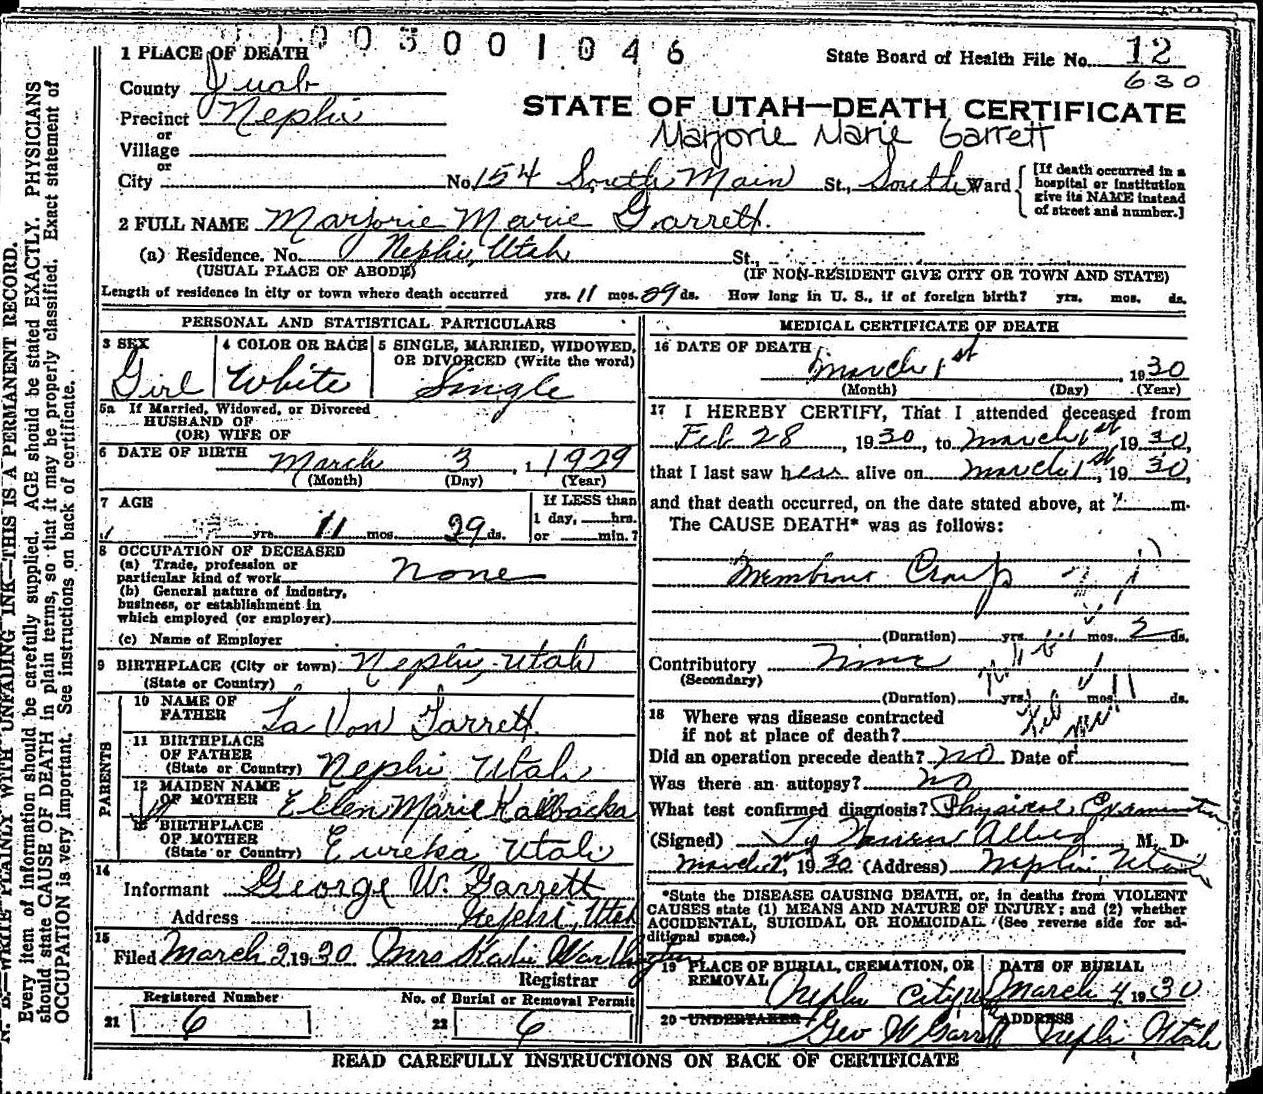 003001046
1 PLACE OF DEATH
State Board of Health File No. 12
630
County Juab
STATE OF UTAH—DEATH CERTIFICATE
Precinct Nephi
Marjorie Marie Garrett
or
Village
or
City
No. 154 South Main St., South Ward
[If death occurred in a hospital or institution give its NAME instead of street and number.]
2 FULL NAME Marjorie Marie Garrett.
(a) Residence. No. Nephi, Utah St.,
(USUAL PLACE OF ABODE) (IF NON-RESIDENT GIVE CITY OR TOWN AND STATE)
Length of residence in city or town where death occurred yrs. 11 mos. 29 ds. How long in U. S., if of foreign birth? yrs. mos. ds.
PERSONAL AND STATISTICAL PARTICULARS
3 SEX 4 COLOR OR RACE 5 SINGLE, MARRIED, WIDOWED,
OR DIVORCED (Write the word)
Girl White Single
5a If Married, Widowed, or Divorced
HUSBAND OF
(OR) WIFE OF
6 DATE OF BIRTH March 3, 1929
(Month) (Day) (Year)
7 AGE If LESS than
1 day, hrs.
yrs. 11 mos. 29 ds. or min.?
8 OCCUPATION OF DECEASED
(a) Trade, profession or
particular kind of work none
(b) General nature of industry,
business, or establishment in
which employed (or employer)
(c) Name of Employer
9 BIRTHPLACE (City or town) Nephi, Utah
(State or Country)
PARENTS
10 NAME OF
FATHER La Von Garrett
11 BIRTHPLACE
OF FATHER
(State or Country) Nephi Utah
12 MAIDEN NAME
OF MOTHER Ellen Marie Kalbacka
13 BIRTHPLACE
OF MOTHER
(State or Country) Eureka Utah
14
Informant George W. Garrett
Address Nephi, Utah
15
Filed March 2 1930 Mrs
Registrar
Registered Number No. of Burial or Removal Permit
21 6 22 6
MEDICAL CERTIFICATE OF DEATH
16 DATE OF DEATH
March 1st, 1930
(Month) (Day) (Year)
17 I HEREBY CERTIFY, That I attended deceased from
Feb 28, 1930, to March 1st 1930,
that I last saw her alive on March 1st, 1930,
and that death occurred, on the date stated above, at m.
The CAUSE DEATH* was as follows:
Membrous Croup
(Duration) yrs. mos. 2 ds.
Contributory
(Secondary)
(Duration) yrs. mos. ds.
18 Where was disease contracted
if not at place of death?
Did an operation precede death? no Date of
Was there an autopsy? no
What test confirmed diagnosis? Physical Examination
(Signed) M. D.
March 2nd, 1930 (Address) Nephi, Utah
*State the DISEASE CAUSING DEATH, or, in deaths from VIOLENT
CAUSES state (1) MEANS AND NATURE OF INJURY; and (2) whether
ACCIDENTAL, SUICIDAL OR HOMICIDAL. (See reverse side for ad-
ditional space.)
19 PLACE OF BURIAL, CREMATION, OR DATE OF BURIAL
REMOVAL Nephi City March 4, 1930
20 UNDERTAKER ADDRESS
Geo W Garrett Nephi Utah
READ CAREFULLY INSTRUCTIONS ON BACK OF CERTIFICATE
N. B.—WRITE PLAINLY WITH UNFADING INK—THIS IS A PERMANENT RECORD.
Every item of information should be carefully supplied. AGE should be stated EXACTLY. PHYSICIANS
should state CAUSE OF DEATH in plain terms, so that it may be properly classified. Exact statement of
OCCUPATION is very important. See instructions on back of certificate.